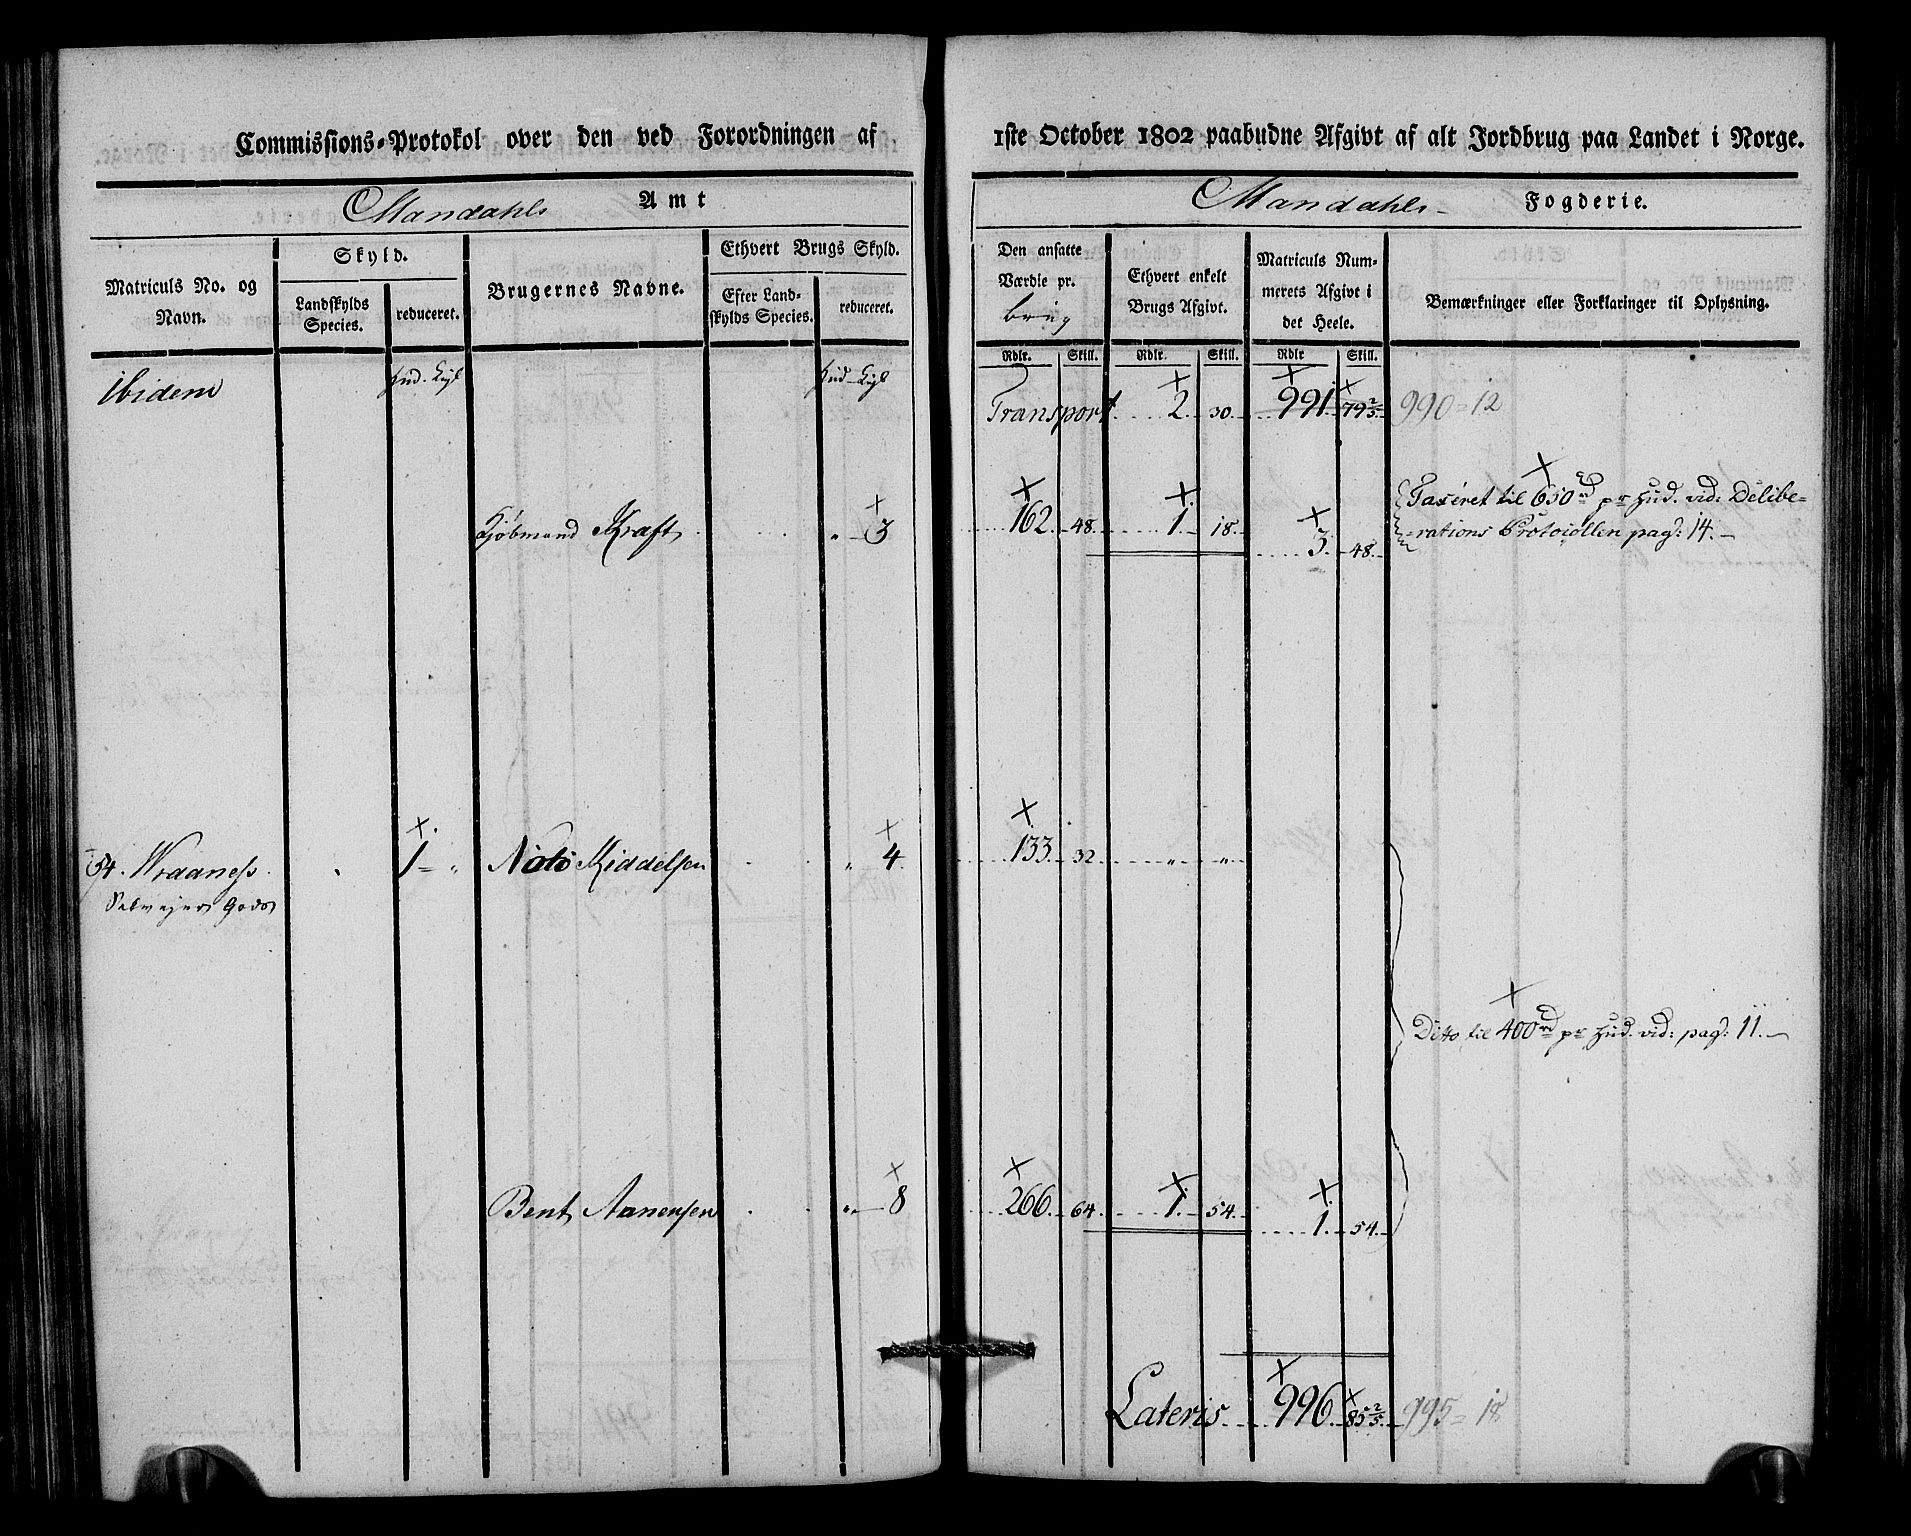 Commissions-Protokol over den ved Forordningen af 1ste October 1802 paabudne Afgivt af alt Jordbrug paa Landet i Norge.
Mandahls Amt
Mandahls Fogderie.
Matriculs No. og Navn.
Skyld.
Landskylds Species.
reduceret.
Brugernes Navne.
Ethvert Brugs Skyld.
Efter Landskylds Species.
reduceret.
Den ansatte Værdie pr. brug
Ethvert enkelt Brugs Afgivt.
Matriculs Nummerets Afgivt i det Heele.
Bemærkninger eller Forklaringer til Oplysning.
Rdlr. Skill. Rdlr. Skill. Rdlr Skill.
Ibidem
Transport 2. 30. 991. 79 2/5 990=12
Kjøbmand Kraft " 3 162. 48. 1. 18. 3. 48.
Taxeret til 650 rd pr Hud. vid: Delibe=
=rations Protocollen pag: 14.
54. Wraaness. 1 " Middelsen " 4. 133. 32 " "
Selvejer Gods
Ditto til 400 rd pr Hud. vid: pag: 11.
Bent Aanensen " 8 266. 64. 1. 54. 1. 54.
Lateris 996. 85 2/5 995=18